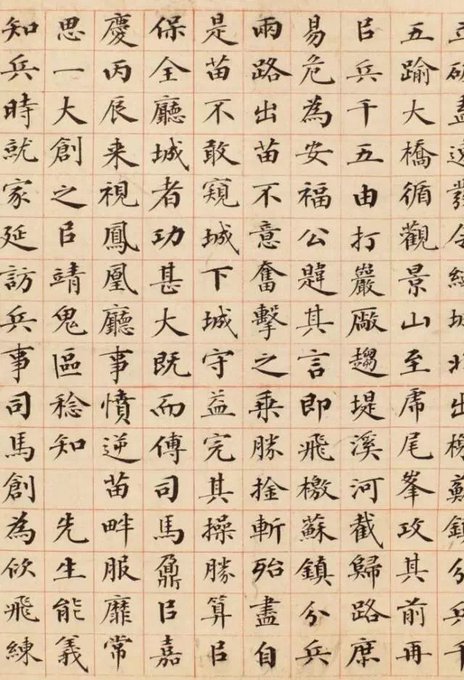 盡遠發
五踰大橋循觀景山至虎尾峯攻其前再
㠯兵千五由打巖厰趨堤溪河截歸路庶
易危為安福公韙其言即飛檄蘇鎮分兵
兩路出苗不意奮擊之乘勝捦斬殆盡自
是苗不敢窺城下城守益完其操勝算㠯
保全廳城者功甚大既而傅司馬鼐㠯嘉
慶丙辰来視鳳凰廳事憤逆苗畔服靡常
思一大創之㠯靖鬼區稔知 先生能義
知兵時就家延訪兵事司馬創為佽飛練